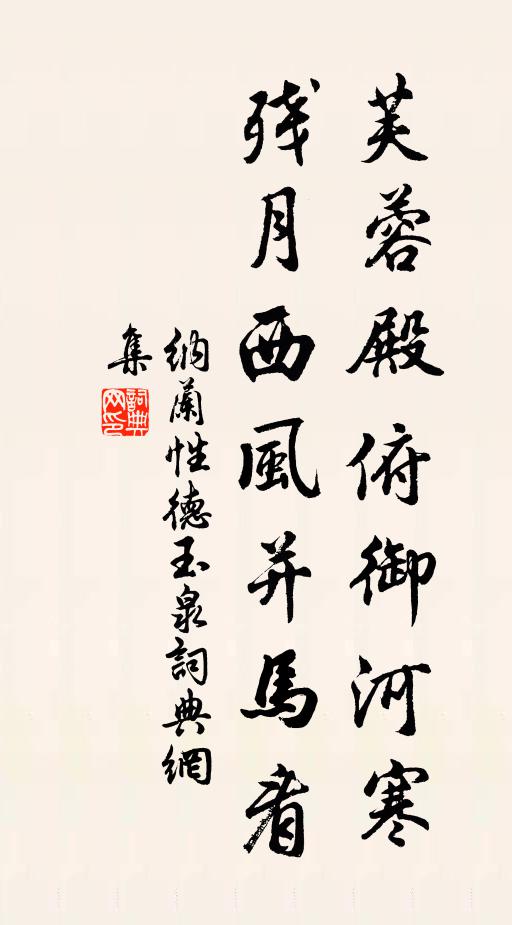 芙蓉殿俯御河寒
残月西風并馬看
納蘭性德玉泉詞典網
集
詞典網印